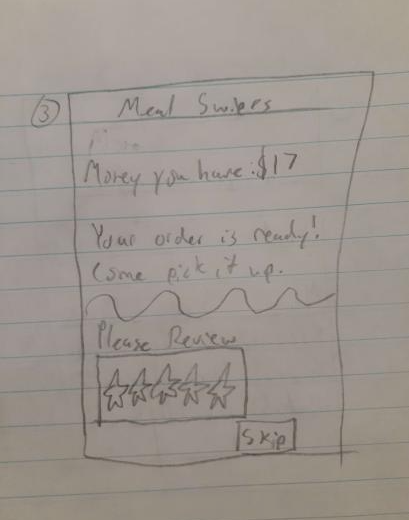 ③
Meal Swipes
Money you have: $17
Your order is ready!
Come pick it up.
Please Review
Skip